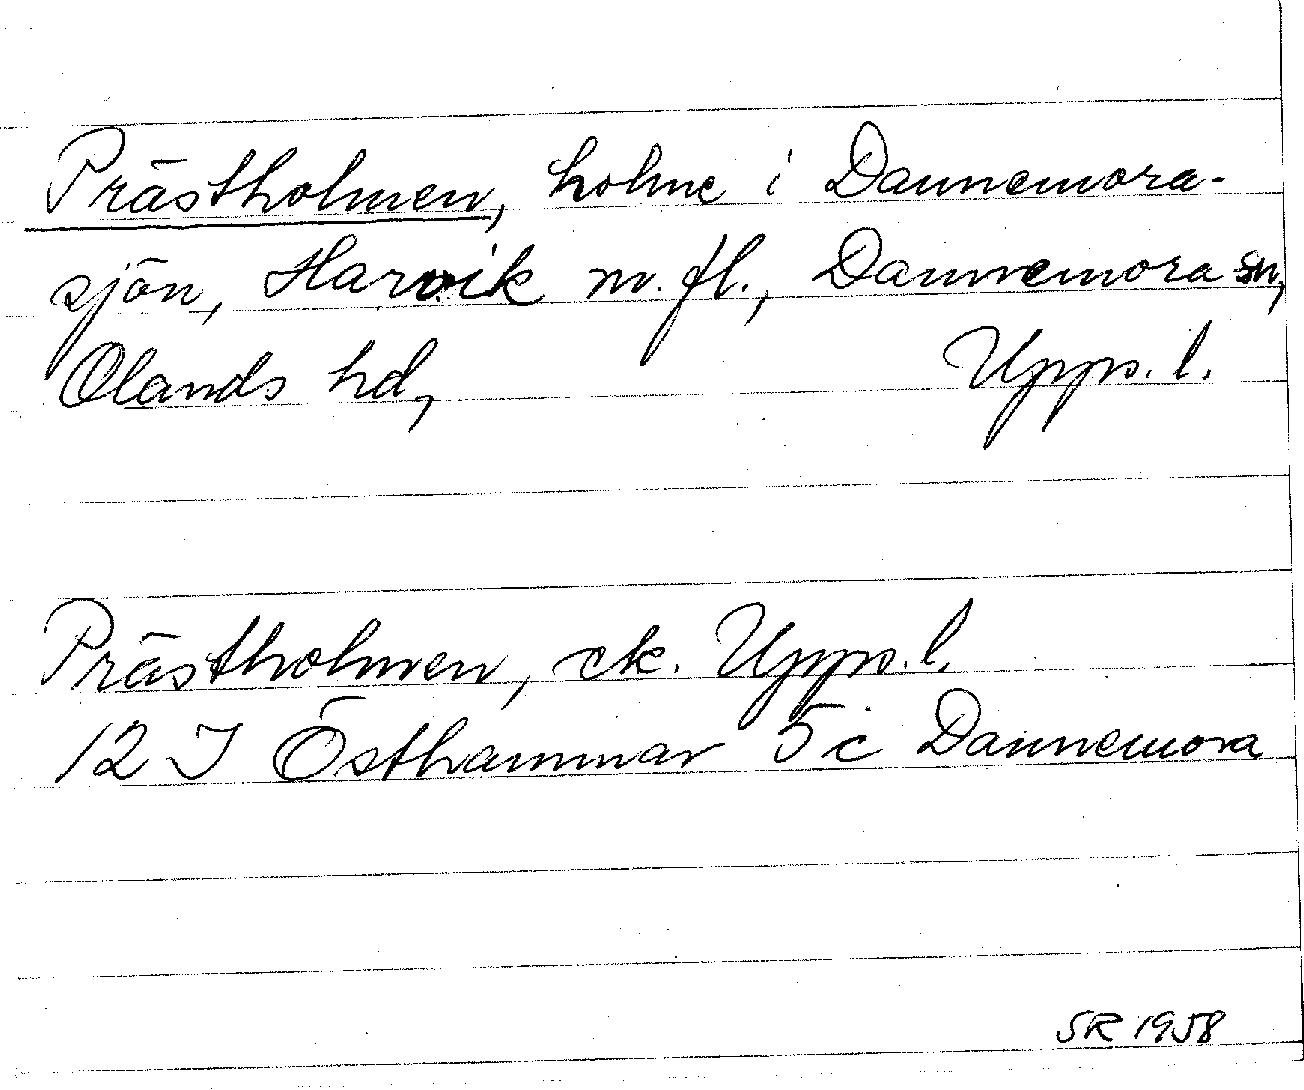 Prästholmen, holme i Dannemora-
sjön, Harvik m. fl., Dannemora sn,
Olands hd, Upps. l.
Prästholmen, ek. Upps. l.
12 I Östhammar 5 c Dannemora
SR 1958